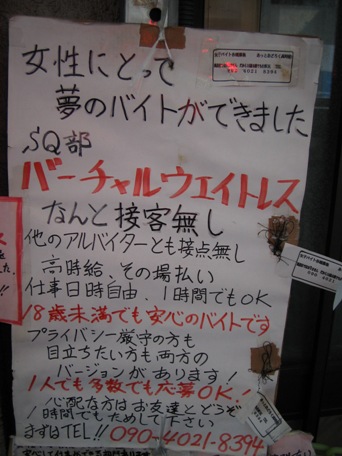 女性にとって
夢のバイトができました
SQ部
バーチャルウエイトレス
なんと接客無し
他のアルバイターとも接点無し
高時給、その場払い
仕事日時自由、1時間でもOK
18歳未満でも安心のバイトです
プライバシー厳守の方も
目立ちたい方も両方の
バージョンがあります!
1人でも多数でも応募OK!
心配な方はお友達とどうぞ
1時間でもためして下さい
まずはTEL!! 090-4021-8394